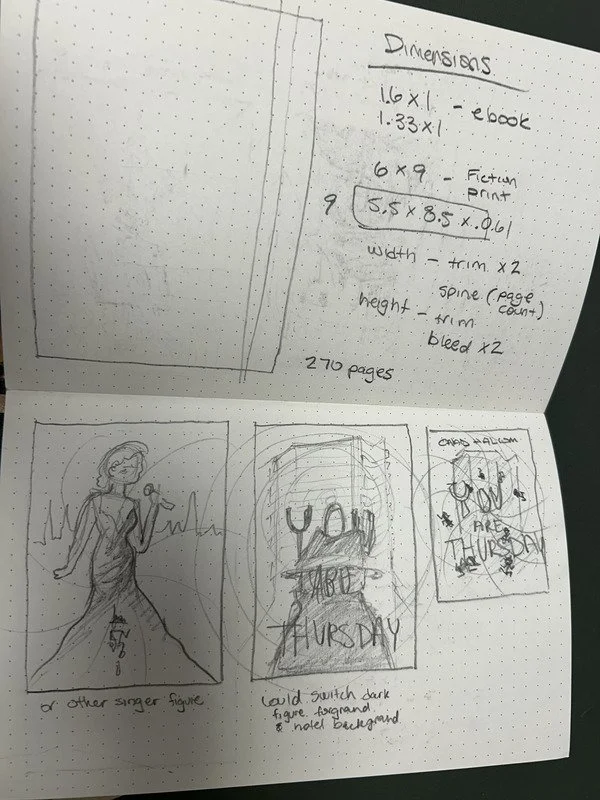 Dimensions
1.6 x 1 - ebook
1.33 x 1
6 x 9 - Fiction
print
9
5.5 x 8.5 x .061
width - trim x2
spine (page
count)
height - trim
bleed x2
270 pages
YOU
ARE
THURSDAY
CHAS HALCOM
YOU
ARE
THURSDAY
or other singer figure
could switch dark
figure forgrand
& hotel background